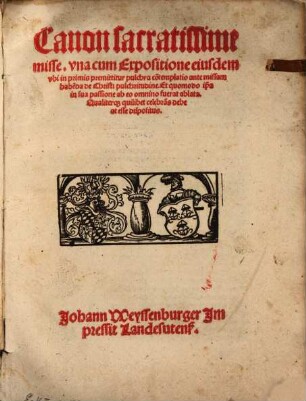 Canon sacratissime
misse. vna cum Expositione eiusdem
vbi in primis premittitur pulchra cõtemplatio ante missam
habẽda de Christi pulchritudine. Et quomodo ip̃a
in sua passione ab eo omnino fuerat ablata.
Qualiterqʒ quilibet celebrãs debe
at esse dispositus.
Johann Weyssenburger Im
pressit Landesutenſ.